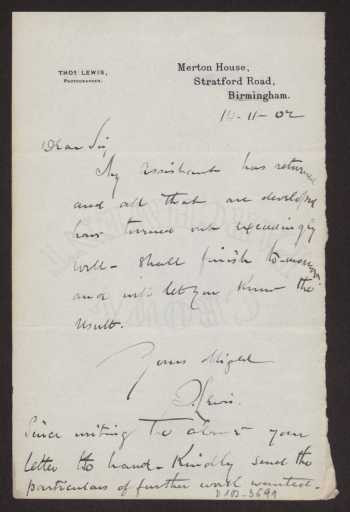 THOS LEWIS,
PHOTOGRAPHER.
Merton House,
Stratford Road,
Birmingham.
11-02
Dear Sir,
My assistant has returned
and all that are developed
have turned out exceedingly
well - shall finish to-morrow
and will let you know the
result.
Yours
T. Lewis.
Since writing the above your
letter to hand - Kindly send the
particulars of further work wanted.